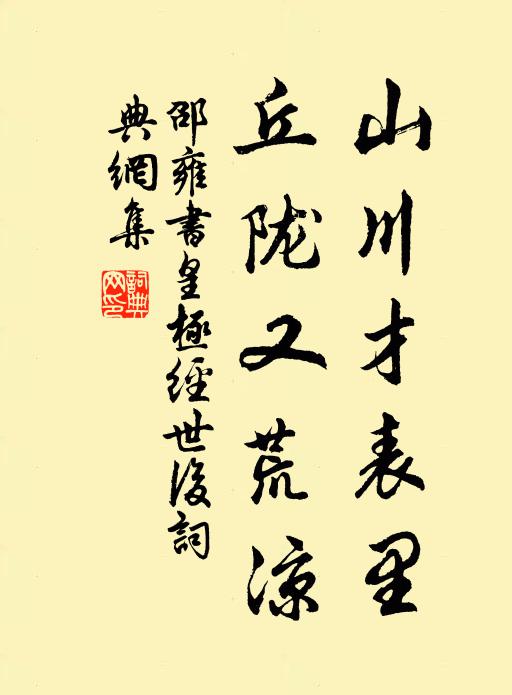 山川才表里
丘陇又荒凉
邵雍書皇極經世後詞
典網集
詞典網印